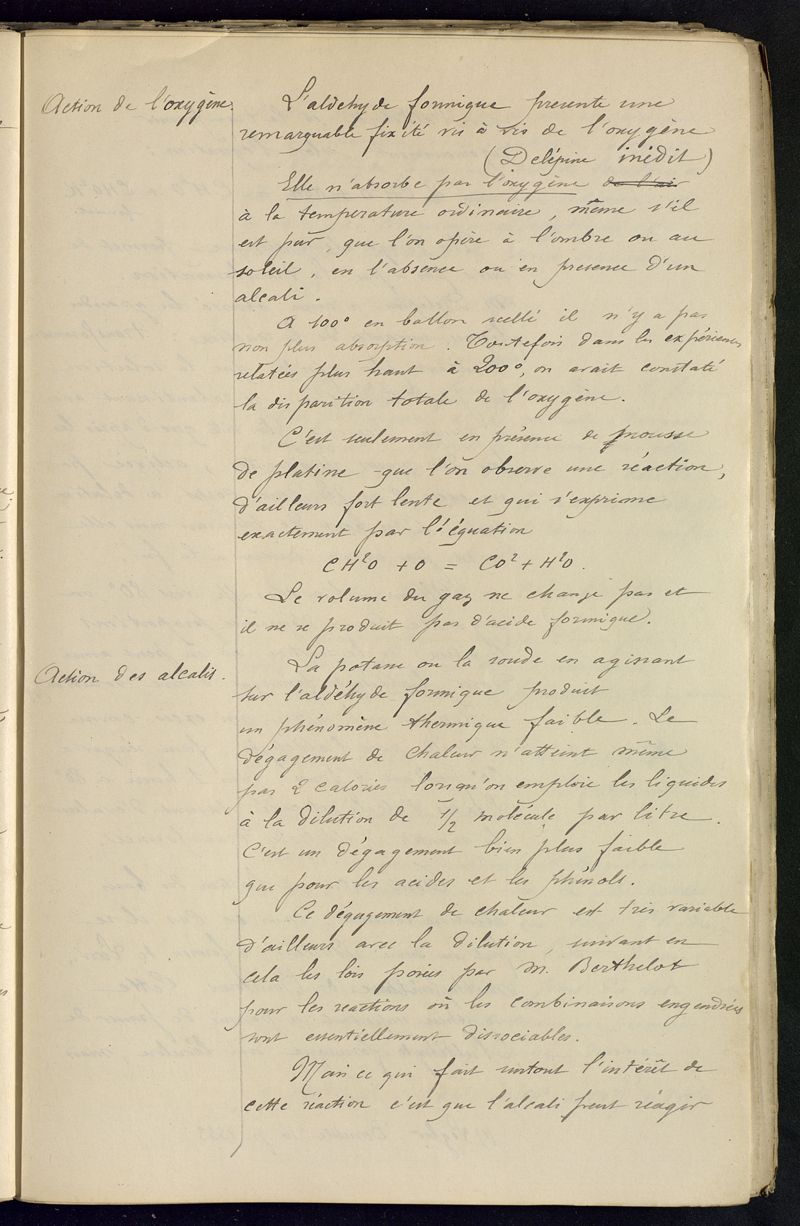 Action de l'oxygène.
L'aldéhyde formique presente une
remarquable fixité vis à vis de l'oxygène
(Delépine inédit)
Elle n'absorbe pas l'oxygène de l'air
à la temperature ordinaire, même s'il
est pur, que l'on opère à l'ombre ou au
soleil, en l'absence ou en presence d'un
alcali.
A 100° en ballon scellé il n'y a pas
non plus absorption. Toutefois dans les expériences
relatées plus haut à 200°, on avait constaté
la disparition totale de l'oxygène.
C'est seulement en présence de mousse
de platine que l'on observe une réaction,
d'ailleurs fort lente et qui s'exprime
exactement par l'équation
CH²O + O = CO² + H²O.
Le volume du gaz ne change pas et
il ne se produit pas d'acide formique.
Action des alcalis.
La potasse ou la soude en agissant
sur l'aldéhyde formique produit
un phénomène thermique faible. Le
dégagement de chaleur n'atteint même
pas 2 calories lorsqu'on emploie les liquides
à la dilution de 1/2 molécule par litre.
C'est un dégagement bien plus faible
que pour les acides et les phénols.
Ce dégagement de chaleur est très variable
d'ailleurs avec la dilution, suivant en
cela les lois posées par M. Berthelot
pour les reactions où les combinaisons engendrées
sont essentiellement dissociables.
Mais ce qui fait surtout l'intérêt de
cette réaction c'est que l'alcali peut réagir